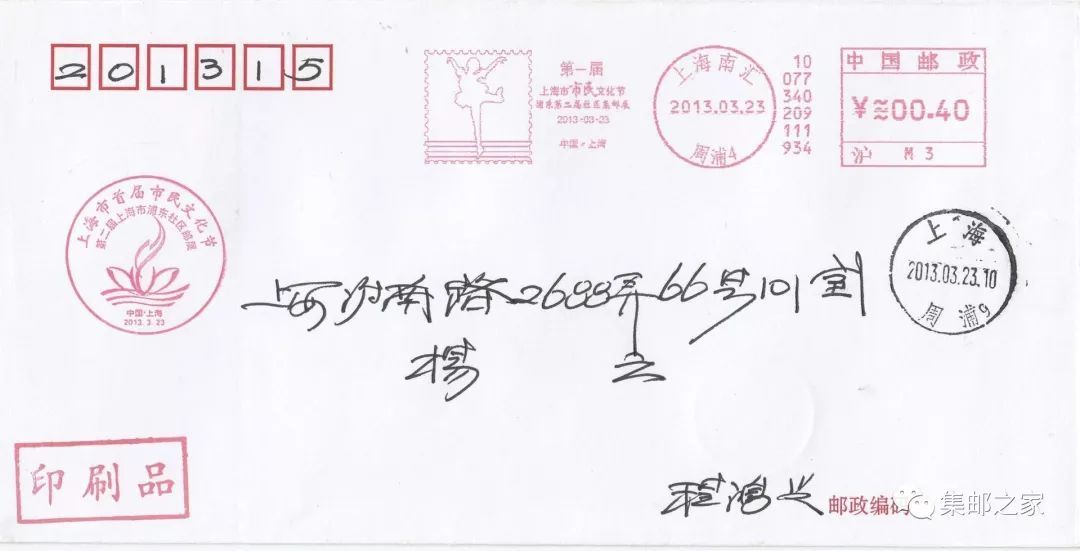 201315
第一届
上海市市民文化节
浦东第二届社区集邮展
2013-03-23
中国·上海
上海南汇
2013.03.23
周浦4
10
077
340
209
111
934
中国邮政
¥≈00.40
沪 M 3
上海市首届市民文化节
第二届上海市浦东社区邮展
中国·上海
2013.3.23
上海
2013.03.23.10
周浦9
上海沪南路2688弄66号101室
杨 立
印刷品
程鸿兴
邮政编码
集邮之家